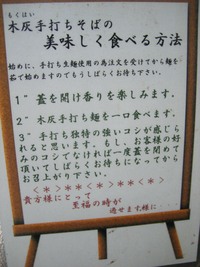 もくはい
木灰手打ちそばの
美味しく食べる方法
始めに、手打ち生麺使用の為注文を受けてから麺を
茹で始めますのでもうしばらくお待ち下さい。
1" 蓋を開け香りを楽しみます。
2" 木灰手打ち麺を一口食べます。
3" 手打ち独特の強いコシが感じら
れると思います。もし、お客様の好
みのコシでなければ一度蓋を閉めて
頂いてしばらくお待ちになってから
お召上がり下さい。
<*>**<*>**<*>
貴方様にとって
至福の時が
過せます様に…